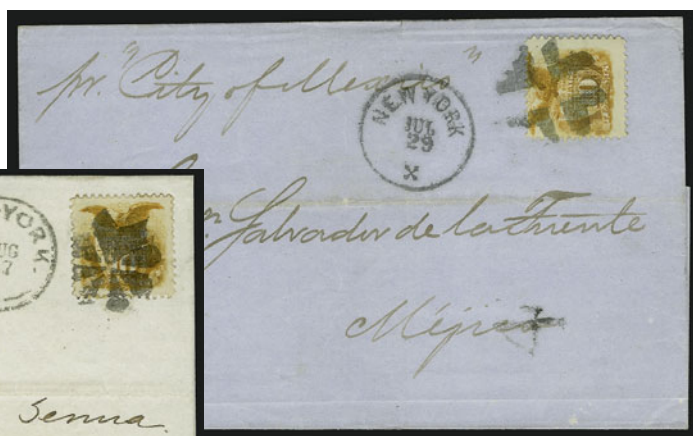 pr. "City of Mexico"
NEW YORK
JUL
29
X
Salvador de la Fuente
Méjico
YORK.
UG
7
10
Genua